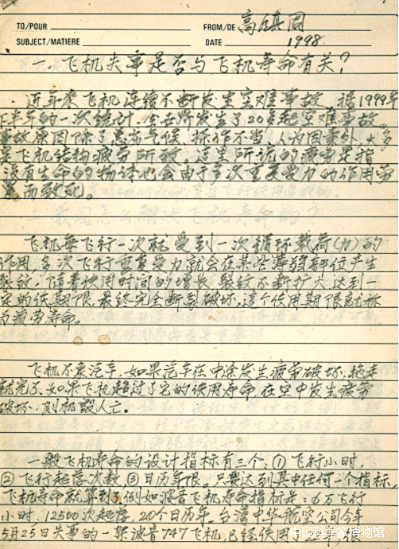 TO/POUR FROM/DE 高镇同
SUBJECT/MATIERE DATE 1998.
一. 飞机失事是否与飞机寿命有关?
近年来飞机连续不断发生空难事故, 据1999年
上半年的一次统计, 发生了20多起空难事故
事故原因除了恶劣气候、操作不当、人为因素外, 大多
是飞机结构疲劳所致, 这里所说的疲劳是指
没有生命的物体也会由于多次重复受力的作用劳
累而致死。
飞机每飞行一次就受到一次循环载荷(力)的
作用, 多次飞行重复受力就会在某处薄弱部位产生
裂纹, 随着使用时间的增长, 裂纹不断扩大达到一
定的使用期限, 最终完全断裂破坏, 这个使用期限就称
为疲劳寿命。
飞机不象汽车, 如果汽车在中途发生疲劳破坏, 拖走
就完了, 如果飞机超过了它的使用寿命, 在空中发生疲劳
破坏, 则机毁人亡。
一般飞机寿命的设计指标有三个: ① 飞行小时,
② 飞行起落次数 ③ 日历年限。只要达到其中任何一个指标,
飞机寿命就算到了, 例如波音飞机寿命指标是: 6万飞行
小时, 12500次起落, 20个日历年。台湾中华航空公司今年
5月25日失事的一架波音747飞机, 已经使用了